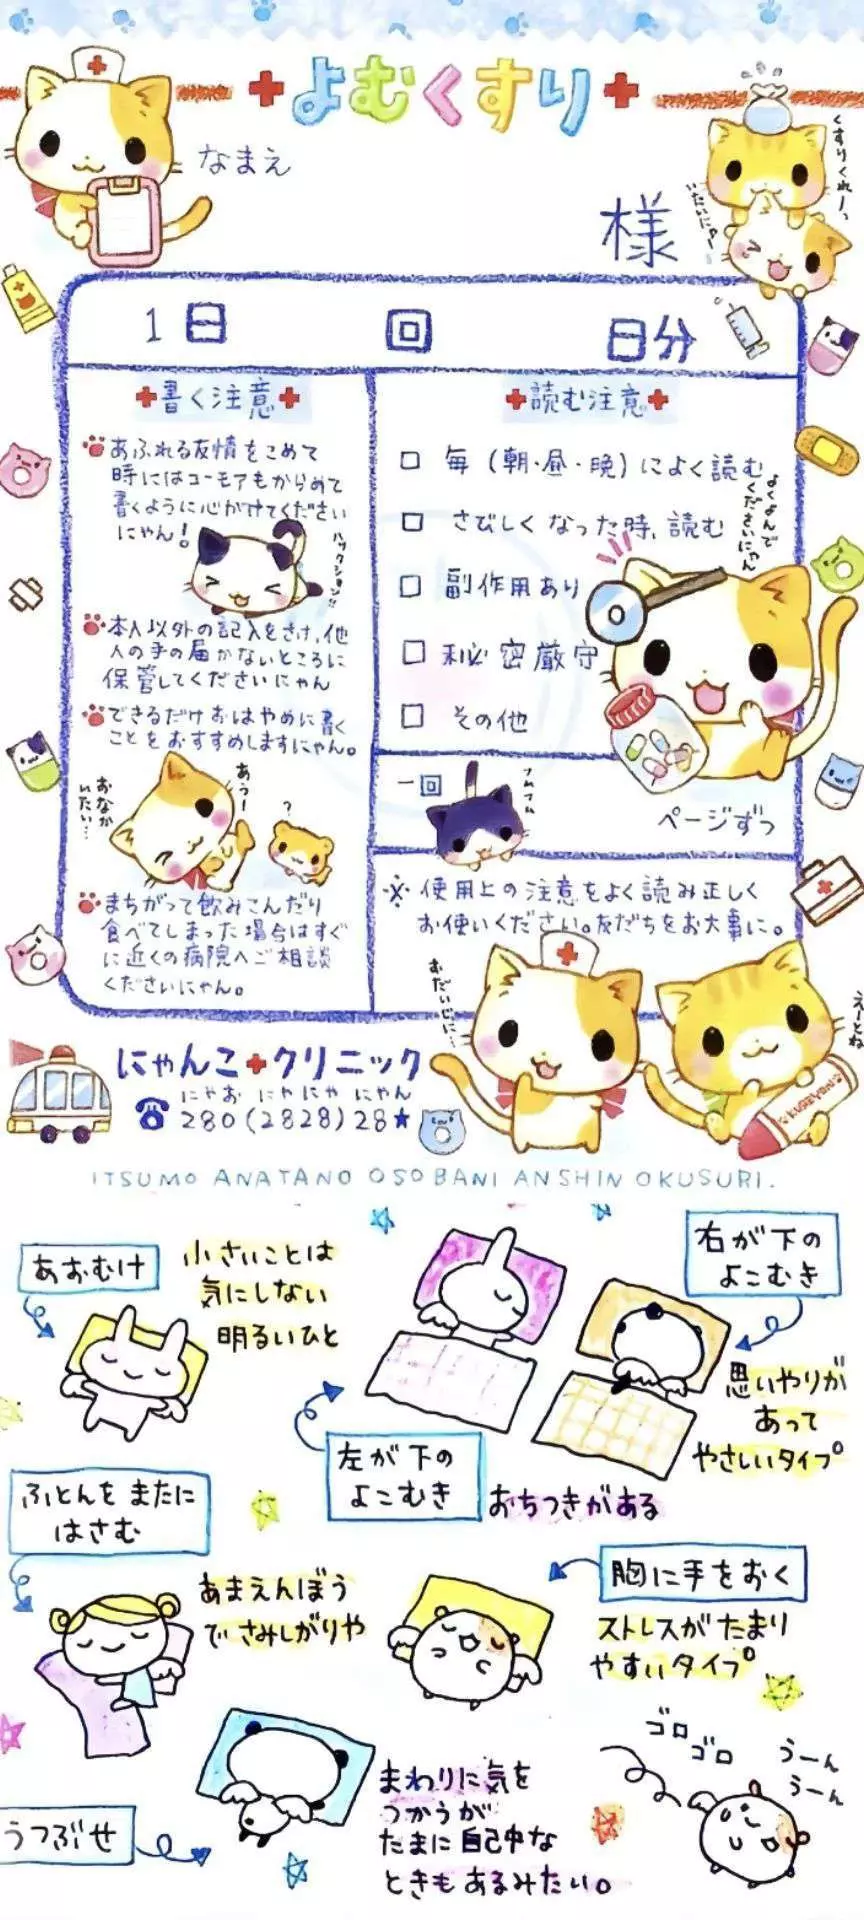 よむくすり
なまえ
様
くすりくれーっ
いたいにゃー
1日 回 日分
書く注意
あふれる友情をこめて
時にはユーモアもからめて
書くように心がけてください
にゃん!
ハックション!!
本人以外の記入をさけ、他
人の手の届かないところに
保管してくださいにゃん
できるだけおはやめに書く
ことをおすすめしますにゃん。
あうー
おなか
いたい…
?
まちがって飲みこんだり
食べてしまった場合はすぐ
に近くの病院へご相談
くださいにゃん。
読む注意
毎(朝・昼・晩)によく読む
さびしくなった時、読む
副作用あり
秘密厳守
その他
よくよんで
くださいにゃん
一回
フムフム
ページずつ
※使用上の注意をよく読み正しく
お使いください。友だちをお大事に。
おだいじに…
えーとね
KUREYON
にゃんこ+クリニック
にゃお にゃにゃ にゃん
☎280(2828)28★
ITSUMO ANATANO OSOBANI ANSHIN OKUSURI.
あおむけ
小さいことは
気にしない
明るいひと
右が下の
よこむき
思いやりが
あって
やさしいタイプ
左が下の
よこむき
おちつきがある
ふとんをまたに
はさむ
あまえんぼう
でさみしがりや
胸に手をおく
ストレスがたまり
やすいタイプ
うつぶせ
まわりに気を
つかうが
たまに自己中な
ときもあるみたい。
ゴロ
ゴロ
うーん
うーん